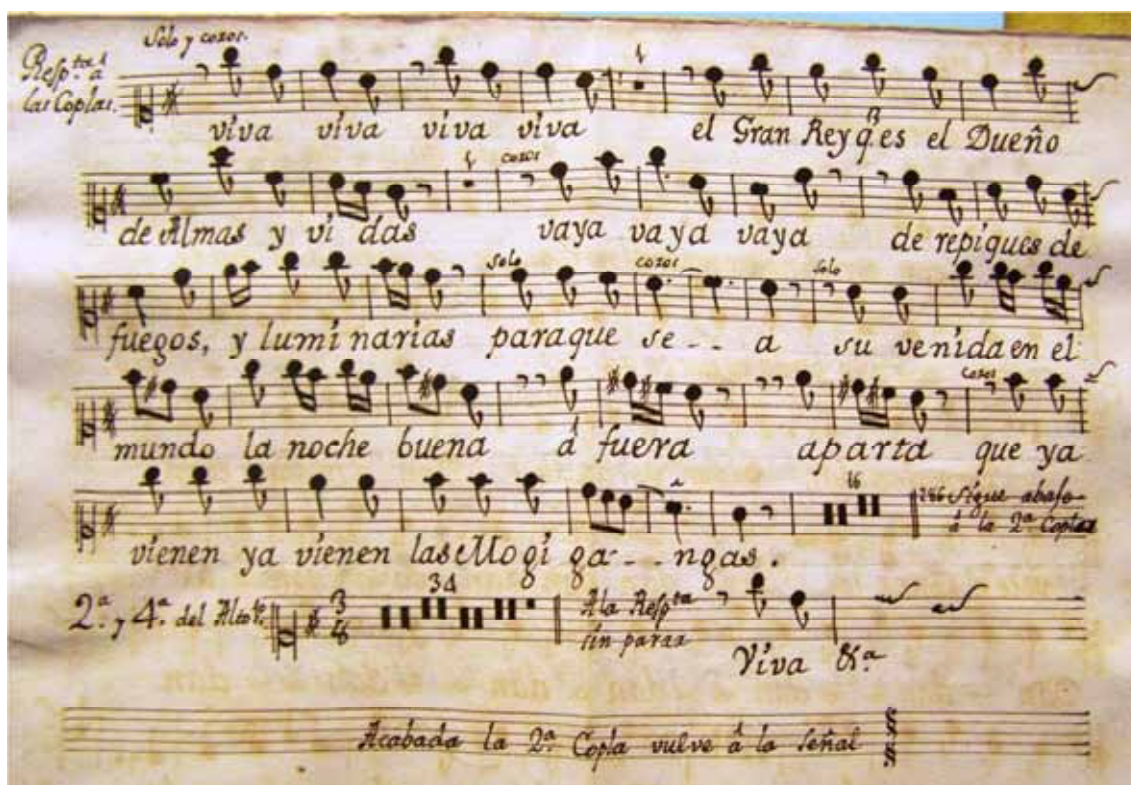 Solo y coros.
Resp.ta á
las Coplas.
viva viva viva viva el Gran Rey q.e es el Dueño
coros
de Almas y vi das vaya vaya vaya de repiques de
solo coros solo
fuegos, y lumi narias paraque se - - a su venida en el
coros
mundo la noche buena á fuera aparta que ya
16
Sigue abajo
á la 2.a Copla
vienen ya vienen las Mogi ga - - ngas.
2.a y 4.a del Alto 1.o 3 8 34 A la Resp.ta
sin parar
Viva &.a
Acabada la 2.a Copla vulve á la señal